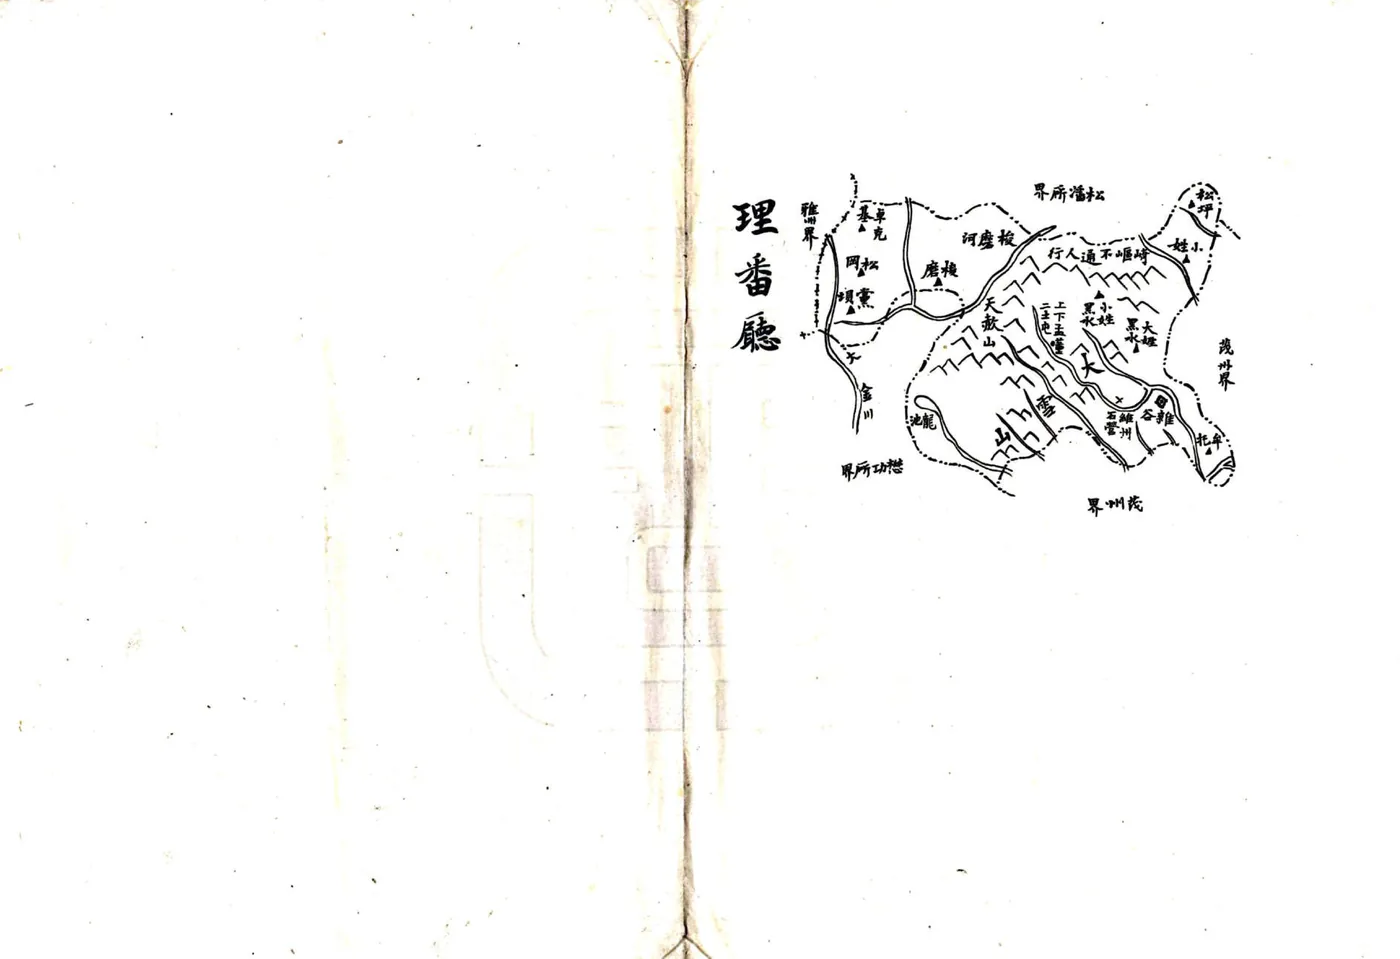 理番廳
松潘所界
雅州界
卓克
基
松岡
黨壩
梭磨
梭磨河
崎嶇不通人行
松坪
小姓
小姓
黑水
大姓
黑水
上下孟董
二土屯
天赦山
大
雪
山
維州
右營
雜谷
龍池
金川
牟托
茂州界
茂州界
懋功所界